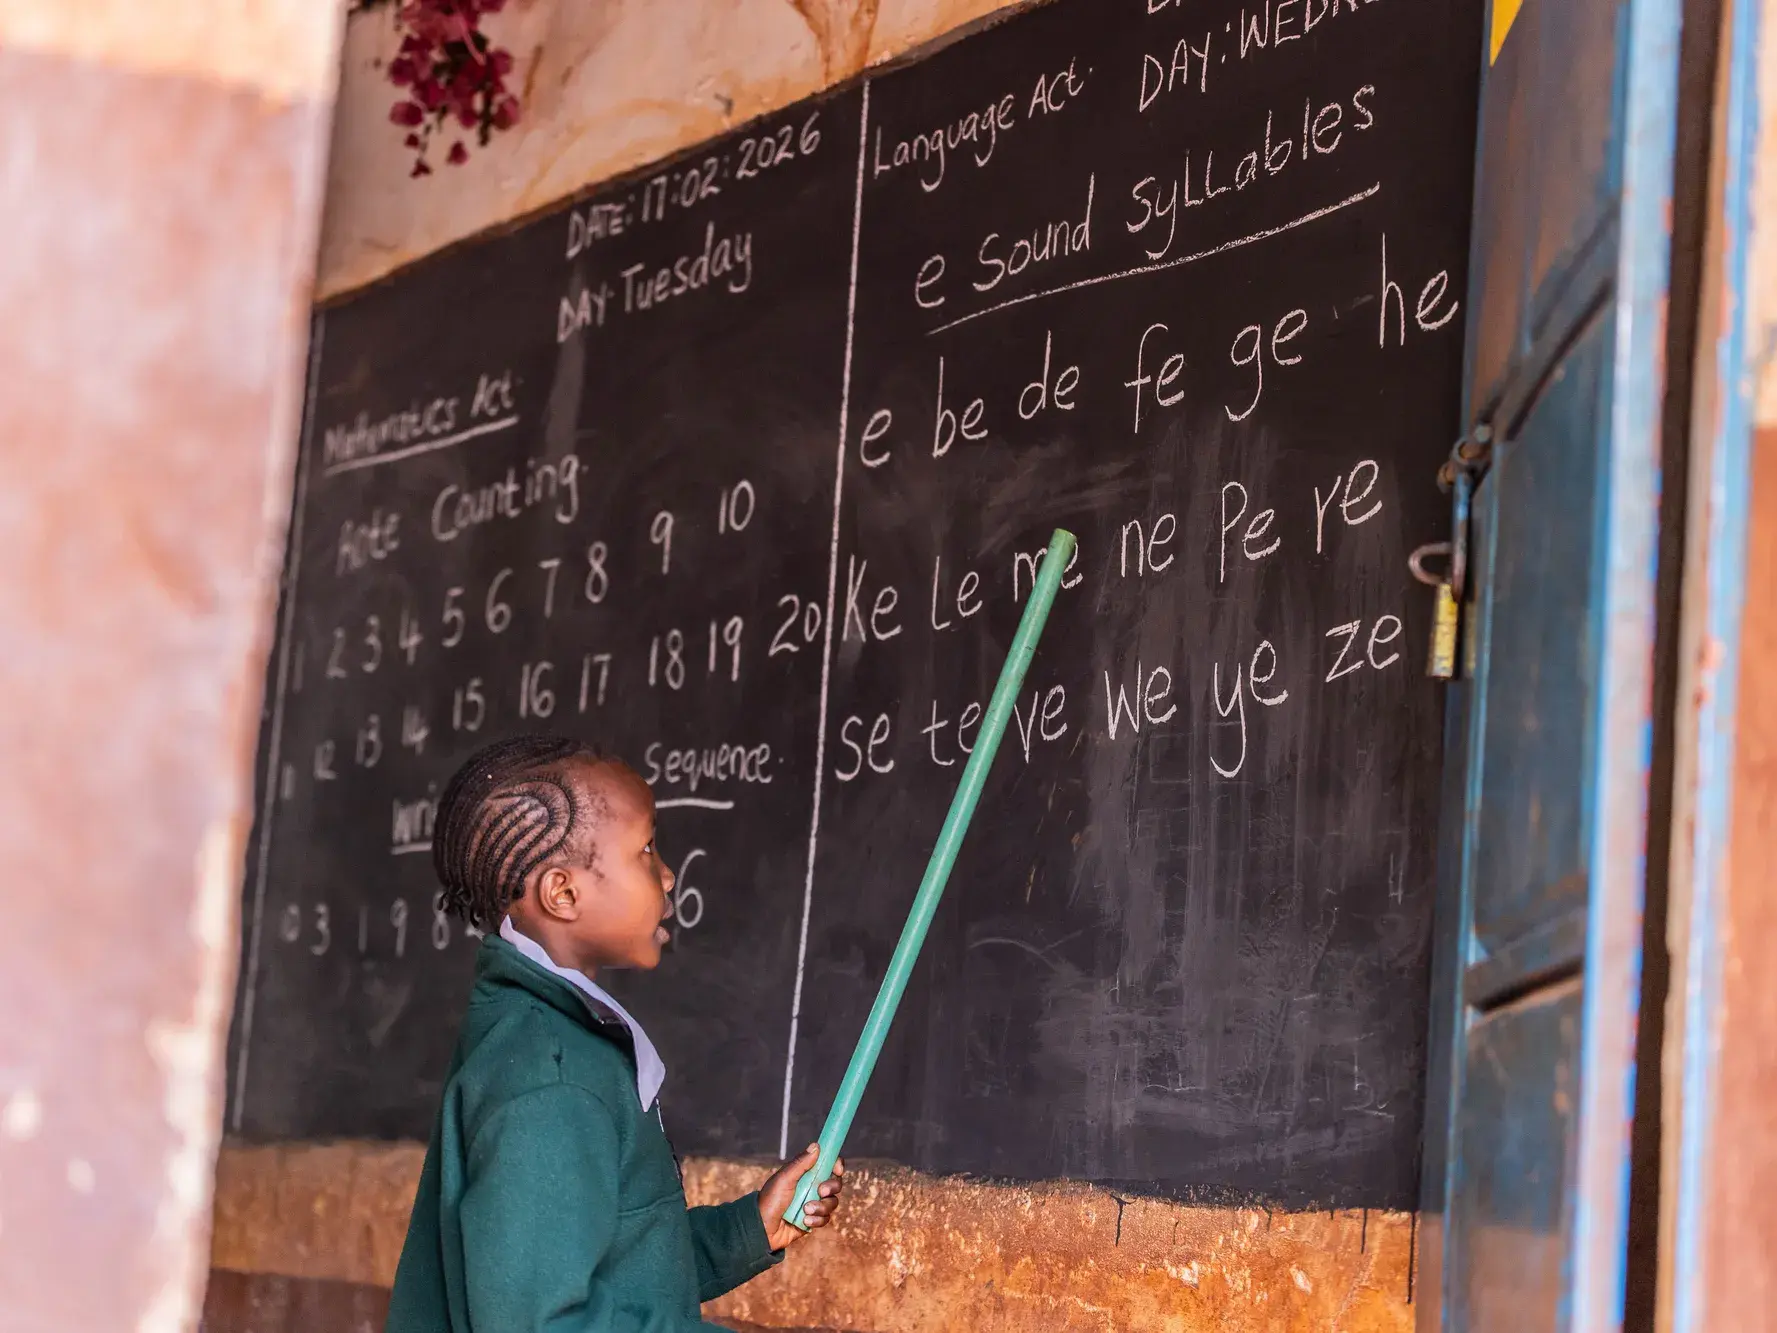 DATE: 17:02:2026
DAY Tuesday
Mathematics Act.
Rote Counting.
1 2 3 4 5 6 7 8 9 10
11 12 13 14 15 16 17 18 19 20
Sequence.
10 3 1 9 8 6
Language Act.
DAY:
e Sound syllables
e be de fe ge he
Ke le me ne Pe re
se te ve We ye ze